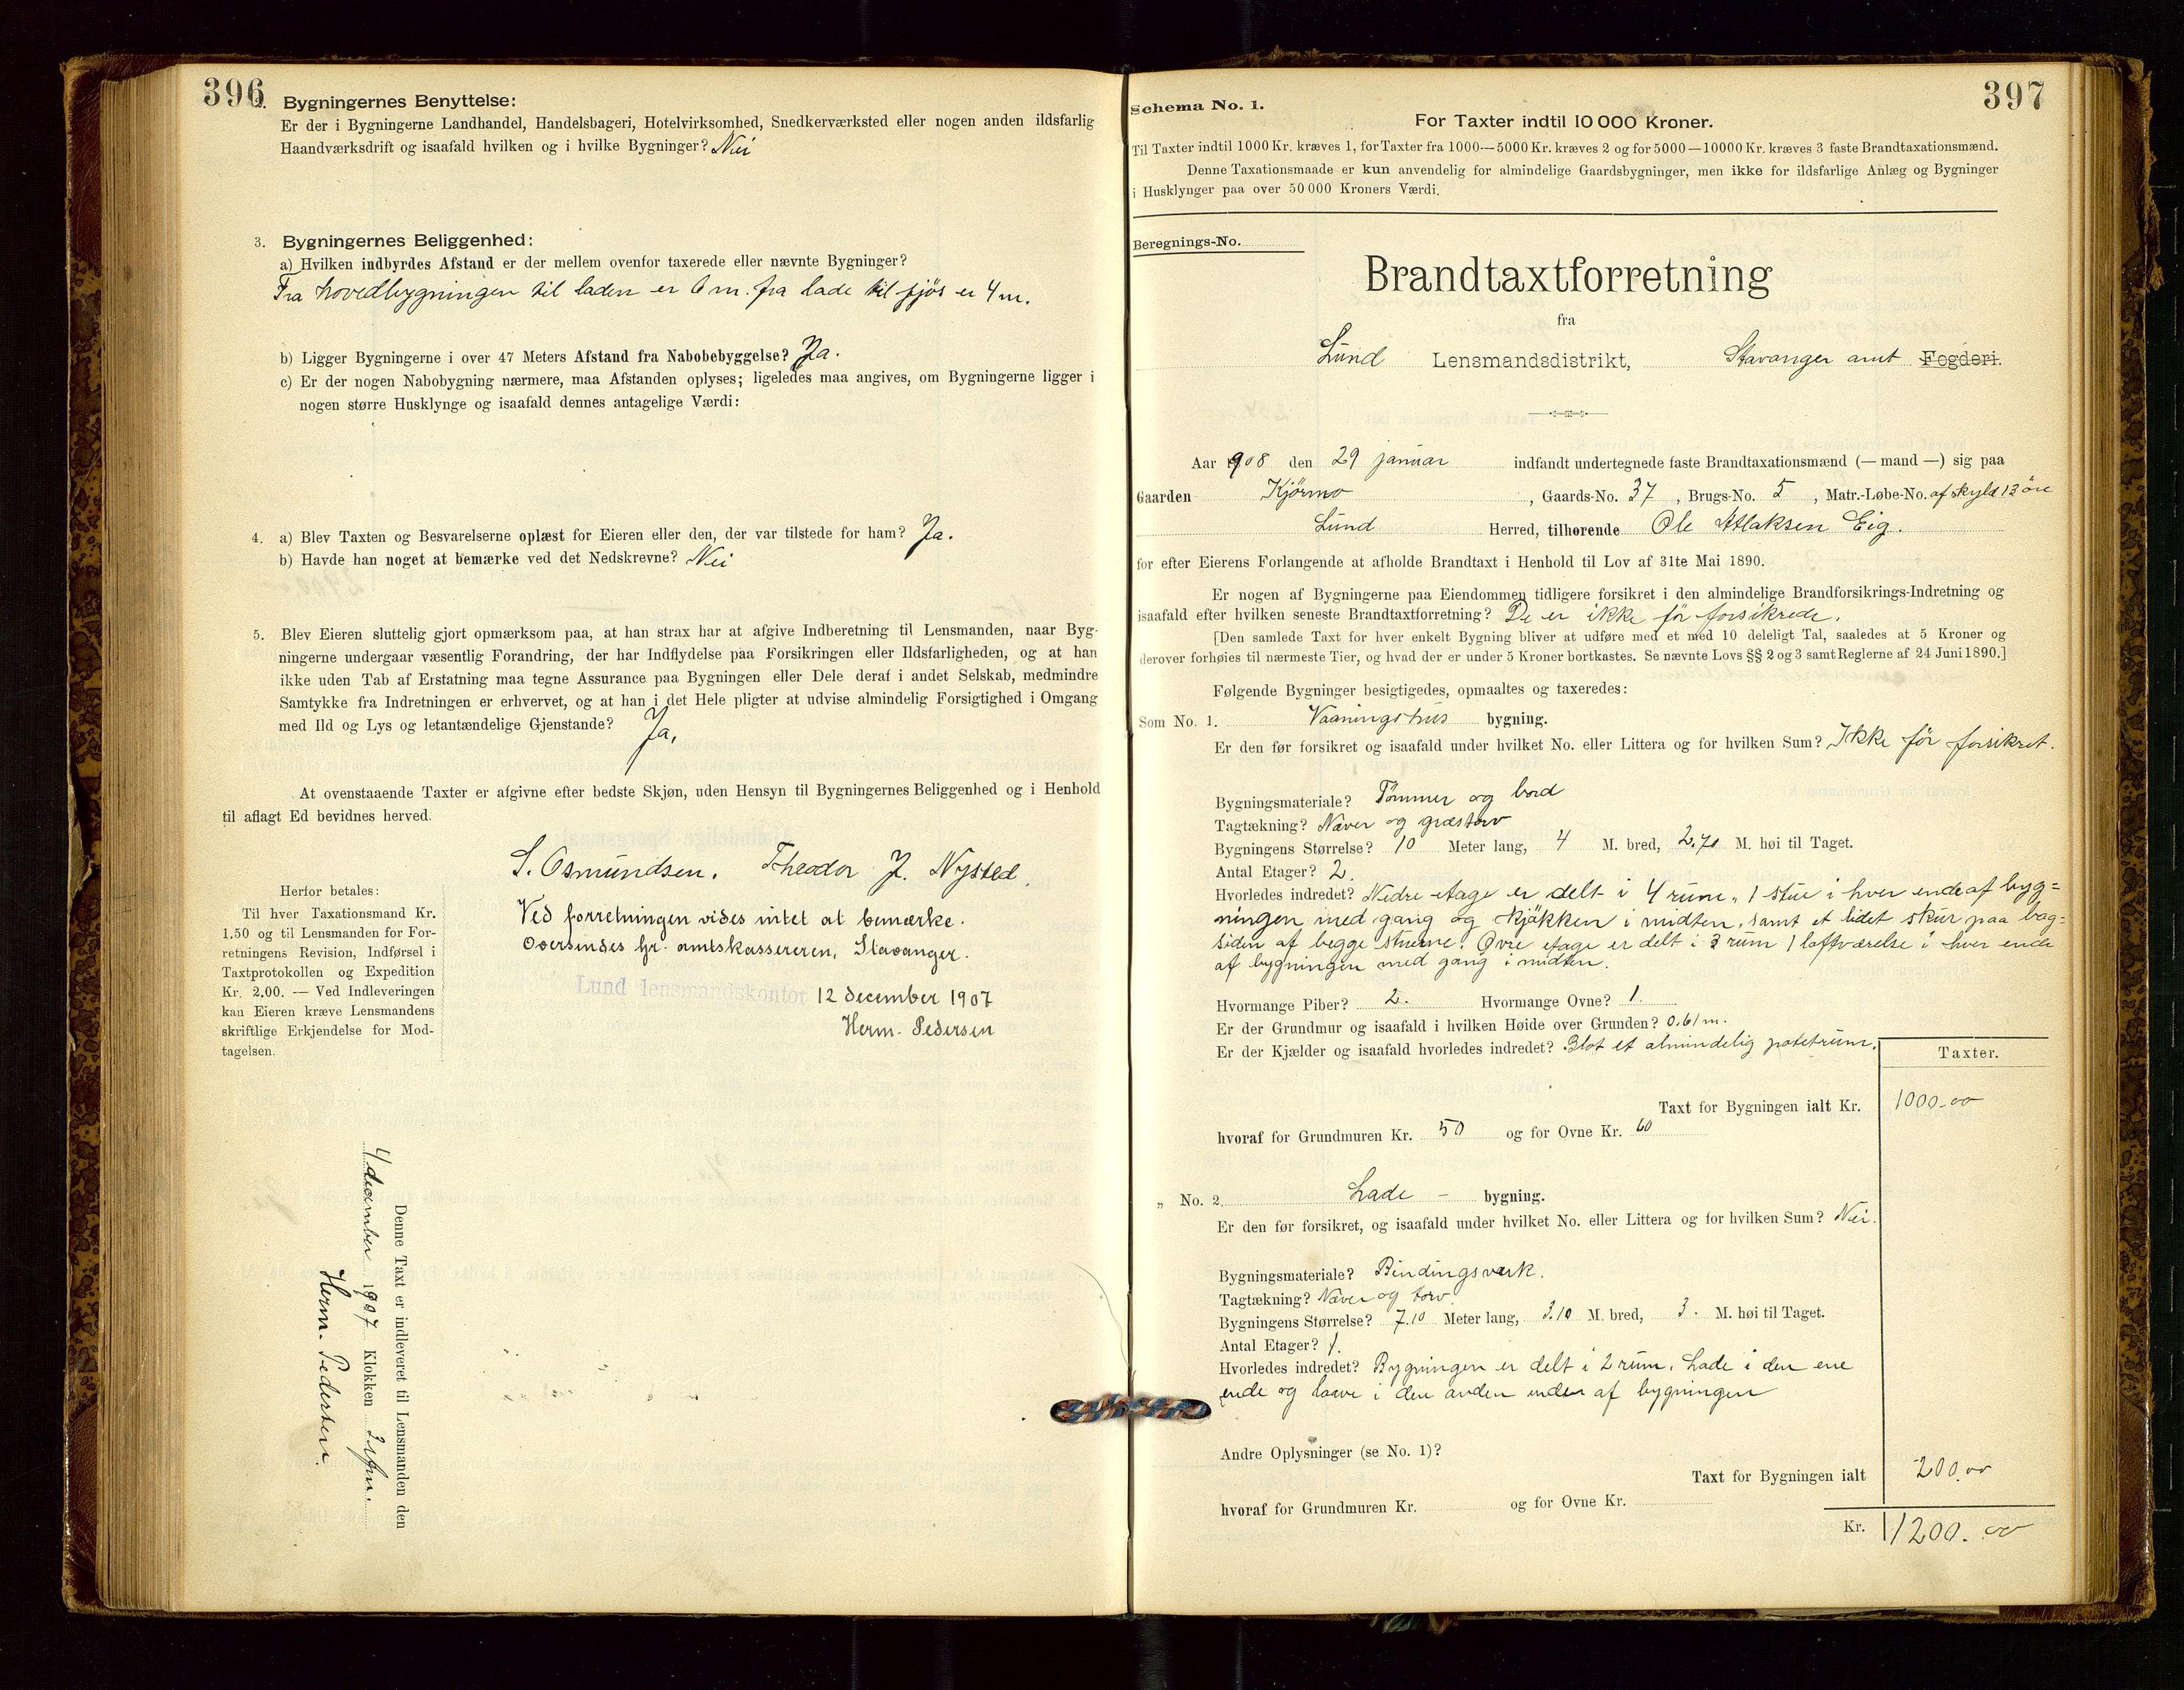 396
2. Bygningernes Benyttelse:
Er der i Bygningerne Landhandel, Handelsbageri, Hotelvirksomhed, Snedkerværksted eller nogen anden ildsfarlig
Haandværksdrift og isaafald hvilken og i hvilke Bygninger? Nei
3. Bygningernes Beliggenhed:
a) Hvilken indbyrdes Afstand er der mellem ovenfor taxerede eller nævnte Bygninger?
Fra hovedbygningen til laden er 6 m. fra lade til fjøs er 4 m.
b) Ligger Bygningerne i over 47 Meters Afstand fra Nabobebyggelse? Ja.
c) Er der nogen Nabobygning nærmere, maa Afstanden oplyses; ligeledes maa angives, om Bygningerne ligger i
nogen større Husklynge og isaafald dennes antagelige Værdi:
4. a) Blev Taxten og Besvarelserne oplæst for Eieren eller den, der var tilstede for ham? Ja.
b) Havde han noget at bemærke ved det Nedskrevne? Nei
5. Blev Eieren sluttelig gjort opmærksom paa, at han strax har at afgive Indberetning til Lensmanden, naar Byg-
ningerne undergaar væsentlig Forandring, der har Indflydelse paa Forsikringen eller Ildsfarligheden, og at han
ikke uden Tab af Erstatning maa tegne Assurance paa Bygningen eller Dele deraf i andet Selskab, medmindre
Samtykke fra Indretningen er erhvervet, og at han i det Hele pligter at udvise almindelig Forsigtighed i Omgang
med Ild og Lys og letantændelige Gjenstande? Ja,
At ovenstaaende Taxter er afgivne efter bedste Skjøn, uden Hensyn til Bygningernes Beliggenhed og i Henhold
til aflagt Ed bevidnes herved.
S. Osmundsen. Theodor J. Nysted.
Herfor betales:
Til hver Taxationsmand Kr.
1.50 og til Lensmanden for For-
retningens Revision, Indførsel i
Taxtprotokollen og Expedition
Kr. 2.00. — Ved Indleveringen
kan Eieren kræve Lensmandens
skriftlige Erkjendelse for Mod-
tagelsen.
Ved forretningen vides intet at bemærke.
Oversendes hr. amtskassereren, Stavanger.
Lund lensmandskontor 12 december 1907
Herm. Pedersen
Denne Taxt er indleveret til Lensmanden den
4 december 1907 Klokken
Herm. Pedersen.
397
Schema No. 1.
For Taxter indtil 10 000 Kroner.
Til Taxter indtil 1000 Kr. kræves 1, for Taxter fra 1000—5000 Kr. kræves 2 og for 5000—10000 Kr. kræves 3 faste Brandtaxationsmænd.
Denne Taxationsmaade er kun anvendelig for almindelige Gaardsbygninger, men ikke for ildsfarlige Anlæg og Bygninger
i Husklynger paa over 50 000 Kroners Værdi.
Beregnings-No.
Brandtaxtforretning
fra
Lund Lensmandsdistrikt, Stavanger amt Fogderi.
Aar 1908 den 29 januar indfandt undertegnede faste Brandtaxationsmænd (— mand —) sig paa
Gaarden Kjørmo, Gaards-No. 37, Brugs-No. 5, Matr.-Løbe-No. af skyld 13 øre
Lund Herred, tilhørende Ole Atlaksen Eig.
for efter Eierens Forlangende at afholde Brandtaxt i Henhold til Lov af 31te Mai 1890.
Er nogen af Bygningerne paa Eiendommen tidligere forsikret i den almindelige Brandforsikrings-Indretning og
isaafald efter hvilken seneste Brandtaxtforretning? De er ikke før forsikrede.
[Den samlede Taxt for hver enkelt Bygning bliver at udføre med et med 10 deleligt Tal, saaledes at 5 Kroner og
derover forhøies til nærmeste Tier, og hvad der er under 5 Kroner bortkastes. Se nævnte Lovs §§ 2 og 3 samt Reglerne af 24 Juni 1890.]
Følgende Bygninger besigtigedes, opmaaltes og taxeredes:
Som No. 1. Vaaningshus bygning.
Er den før forsikret og isaafald under hvilket No. eller Littera og for hvilken Sum? Ikke før forsikret.
Bygningsmateriale? Tømmer og bord
Tagtækning? Næver og græstorv
Bygningens Størrelse? 10 Meter lang, 4 M. bred, 2.70 M. høi til Taget.
Antal Etager? 2.
Hvorledes indredet? Nedre etage er delt i 4 rum, 1 stue i hver ende af byg=
ningen med gang og kjøkken i midten, samt et lidet skur paa bag-
siden af begge stuerne. Øvre etage er delt i 3 rum 1 loftværelse i hver ende
af bygningen med gang i midten.
Hvormange Piber? 2. Hvormange Ovne? 1.
Er der Grundmur og isaafald i hvilken Høide over Grunden? 0.61 m.
Er der Kjælder og isaafald hvorledes indredet? Blot et almindelig potetrum.
Taxter.
Taxt for Bygningen ialt Kr. 1000.00
hvoraf for Grundmuren Kr. 50 og for Ovne Kr. 60
„ No. 2. Lade - bygning.
Er den før forsikret, og isaafald under hvilket No. eller Littera og for hvilken Sum? Nei.
Bygningsmateriale? Bindingsverk.
Tagtækning? Næver og torv.
Bygningens Størrelse? 7.10 Meter lang, 3.10 M. bred, 3. M. høi til Taget.
Antal Etager? 1.
Hvorledes indredet? Bygningen er delt i 2 rum. Lade i den ene
ende og laave i den anden enden af bygningen
Andre Oplysninger (se No. 1)?
Taxt for Bygningen ialt 200.00
hvoraf for Grundmuren Kr. og for Ovne Kr.
Kr. 1200.00